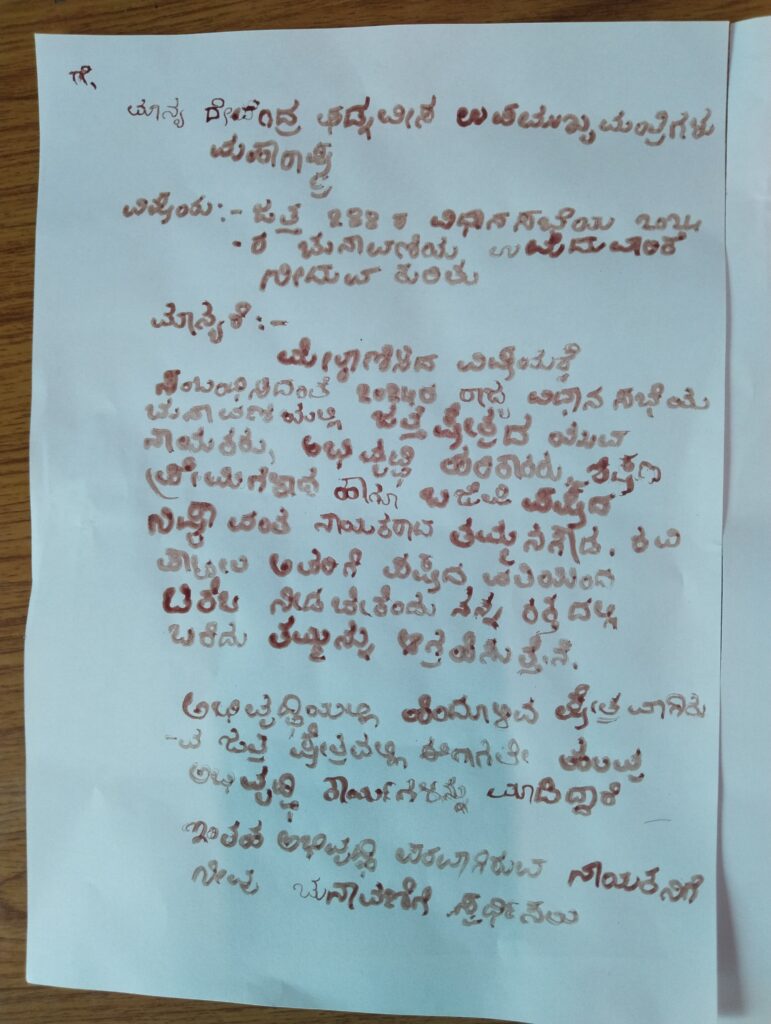 ಗೆ,
ಮಾನ್ಯ ದೇವೇಂದ್ರ ಫಡ್ನವೀಸ ಉಪಮುಖ್ಯಮಂತ್ರಿಗಳು
ಮಹಾರಾಷ್ಟ್ರ
ವಿಷಯ :- ಜತ್ತ 288 ರ ವಿಧಾನಸಭೆಯ ೨೦೨೪
- ರ ಚುನಾವಣೆಯ ಉಮೆದುವಾರಿಕೆ
ನೀಡುವ ಕುರಿತು
ಮಾನ್ಯರೆ :-
ಮೇಲ್ಕಾಣಿಸಿದ ವಿಷಯಕ್ಕೆ
ಸಂಬಂಧಿಸಿದಂತೆ 2024ರ ರಾಜ್ಯ ವಿಧಾನಸಭೆಯ
ಚುನಾವಣೆಯಲ್ಲಿ ಜತ್ತ ಕ್ಷೇತ್ರದ ಯುವ
ನಾಯಕರು, ಅಭಿವೃದ್ಧಿ ಹರಿಕಾರರು, ಶಿಕ್ಷಣ
ಪ್ರೇಮಿಗಳಾದ ಹಾಗೂ ಬಿಜೆಪಿ ಪಕ್ಷದ
ನಿಷ್ಠಾವಂತ ನಾಯಕರಾದ ತಮ್ಮನಗೌಡ. ರವಿ
ಪಾಟೀಲ ಅವರಿಗೆ ಪಕ್ಷದ ವತಿಯಿಂದ
ಟಿಕೆಟ ನೀಡಬೇಕೆಂದು ನನ್ನ ರಕ್ತದಲ್ಲಿ
ಬರೆದು ತಮ್ಮನ್ನು ಆಗ್ರಹಿಸುತ್ತೇನೆ.
ಅಭಿವೃದ್ಧಿಯಲ್ಲಿ ಹಿಂದುಳಿದ ಕ್ಷೇತ್ರವಾಗಿರು
-ವ ಜತ್ತ ಕ್ಷೇತ್ರದಲ್ಲಿ ಈಗಾಗಲೇ ಹಲವು
ಅಭಿವೃದ್ಧಿ ಕಾರ್ಯಗಳನ್ನು ಮಾಡಿದ್ದಾರೆ
ಇಂತಹ ಅಭಿವೃದ್ಧಿ ಪರವಾಗಿರುವ ನಾಯಕನಿಗೆ
ನೀವು ಚುನಾವಣೆಗೆ ಸ್ಪರ್ಧಿಸಲು